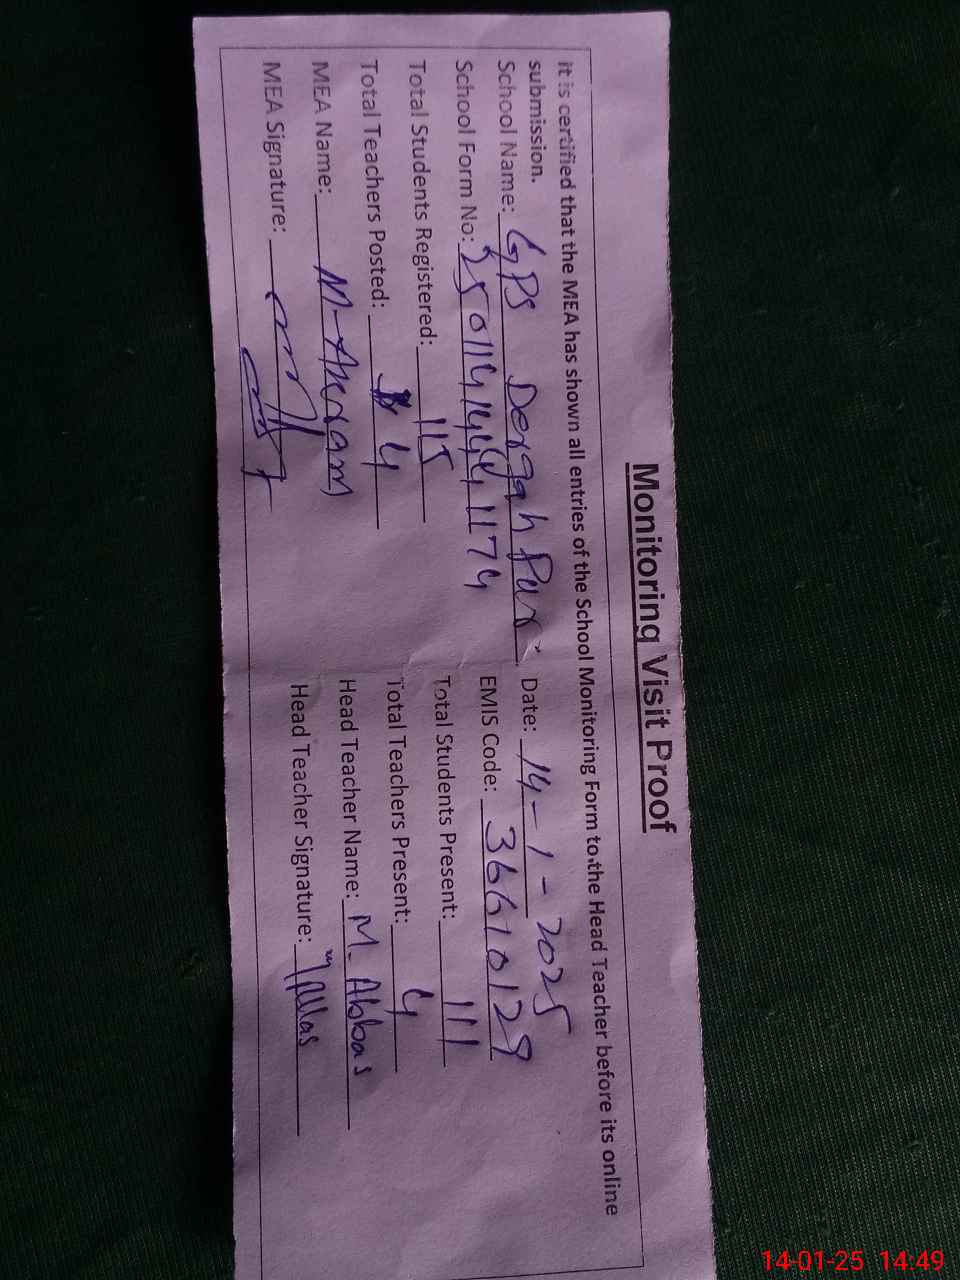 Monitoring Visit Proof
it is certified that the MEA has shown all entries of the School Monitoring Form to the Head Teacher before its online
submission.
School Name: GPS Dergah Pur Date: 14-1-2025
School Form No: EMIS Code: 36610129
Total Students Registered: 115 Total Students Present: 111
Total Teachers Posted: 4 Total Teachers Present: 4
MEA Name: M-Akram Head Teacher Name: M. Abbas
MEA Signature: Head Teacher Signature:
14-01-25 14:49